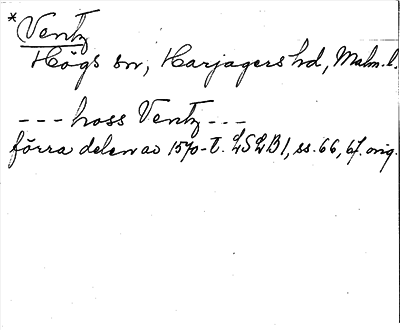 *Ventz
Högs sn, Harjagers hd, Malm. l.
--- hoss Ventz ---
förra delen av 1570-t. LSLB 1, ss. 66, 67. orig.